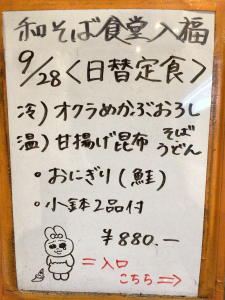 和そば食堂 入福
9/28<日替定食>
冷)オクラめかぶおろし
温)甘揚げ昆布 そば うどん
・おにぎり(鮭)
・小鉢2品付
¥880.―
=入口
こちら⇒